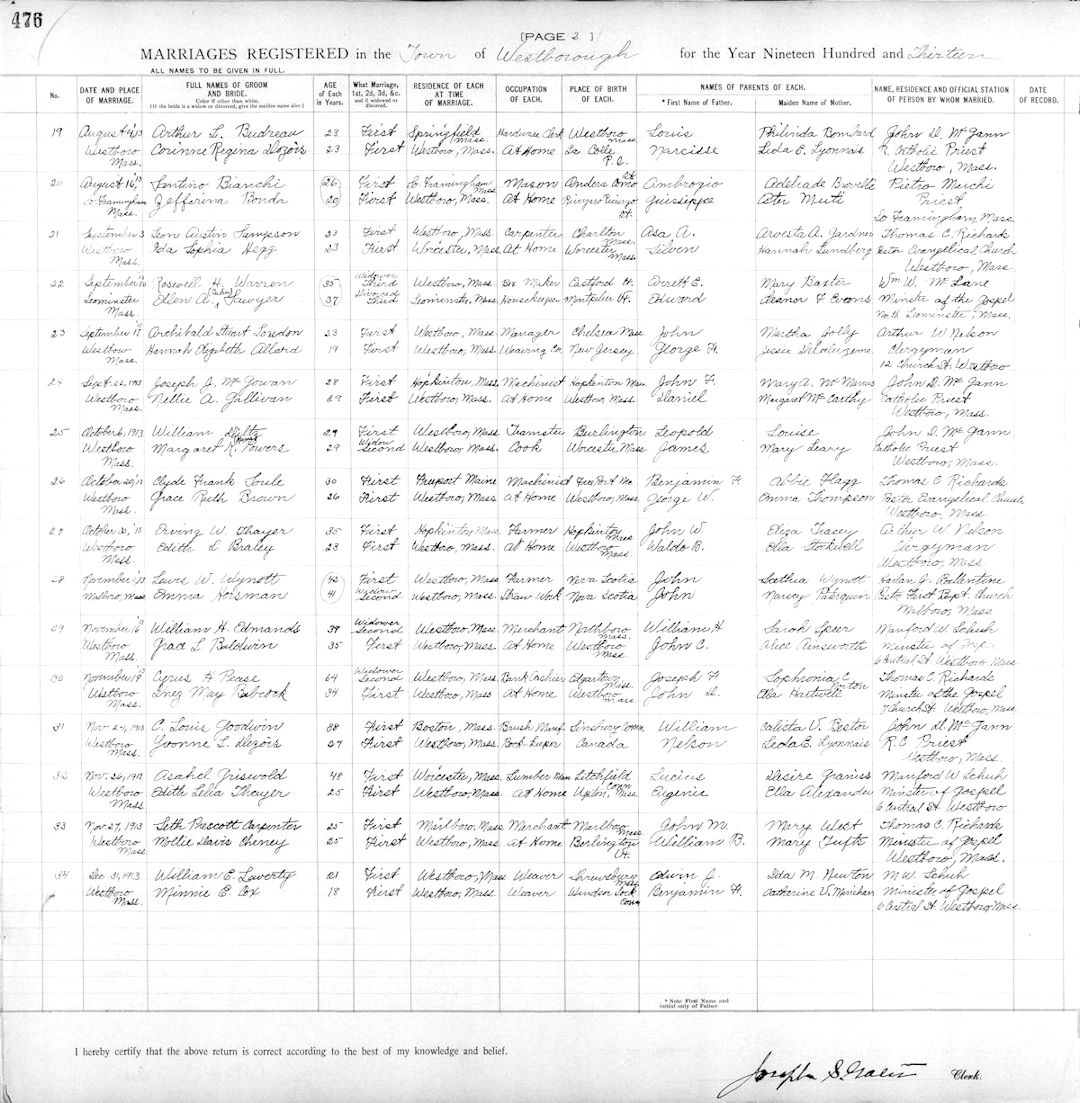 476
[PAGE 2]
MARRIAGES REGISTERED in the Town of Westborough for the Year Nineteen Hundred and Thirteen
ALL NAMES TO BE GIVEN IN FULL.
No. DATE AND PLACE OF MARRIAGE. FULL NAMES OF GROOM AND BRIDE. Color if other than white. (If the bride is a widow or divorced, give the maiden name also.) AGE of Each in Years. What Marriage, 1st, 2d, 3d, &c. and if widowed or divorced. RESIDENCE OF EACH AT TIME OF MARRIAGE. OCCUPATION OF EACH. PLACE OF BIRTH OF EACH. NAMES OF PARENTS OF EACH. * First Name of Father. Maiden Name of Mother. NAME, RESIDENCE AND OFFICIAL STATION OF PERSON BY WHOM MARRIED. DATE OF RECORD.
19 August 4, '13 Arthur L. Budreau 23 First Springfield Mass. Hardware Clerk Westboro Mass Louis Philinda Bombard John D. McGann
Westboro Mass. Corinne Regina 23 First Westboro, Mass. At Home La Colle P.Q. Narcisse Leda E. Lyonnais R Catholic Priest
Westboro, Mass.
20 August 16, '13 Santino Bianchi 26 First So Framingham Mass Mason Como It Ambrogio Adelaide Pietro
So Framingham Mass. Jefferina Bonda 20 First Westboro, Mass. At Home It. Guiseppe Ester Muti Priest
So Framingham, Mass
21 September 3 Leon Austin Sampson 23 First Westboro, Mass Carpenter Charlton Mass. Asa A. Arvesta A. Gardner Thomas C. Richards
Westboro Mass. Ida Sophia Hegg 23 First Worcester, Mass At Home Worcester Mass Silven Hannah Lundberg Pastor Evangelical Church
Westboro, Mass
22 September 10 Roswell H. Warren 35 Widower Third Westboro, Mass Box Maker Eastford Ct. Everett E. Mary Baxter Wm W. McLane
Leominster Mass. Ellen A. Sawyer 37 Divorced Third Leominster, Mass. Housekeeper Montpelier Vt. Edward Eleanor F Evans Minister of the Gospel
North Leominster, Mass.
23 September 17 Archibald Stuart Loudon 23 First Westboro, Mass. Manager Chelsea Mass John Martha Jolly Arthur W Nelson
Westboro Mass. Hannah Elizabeth Allard 19 First Westboro, Mass. Weaving Co. New Jersey George H. Jessie Clergyman
12 Church St. Westboro
24 Sept 22, 1913 Joseph J. McGowan 28 First Hopkinton, Mass. Machinist Hopkinton Mass John F. Mary A. McManus John D. McGann
Westboro Mass. Nellie A. Gallivan 27 First Westboro, Mass. At Home Westboro, Mass. Daniel Margaret McCarthy Catholic Priest
Westboro, Mass.
25 October 6, 1913 William 29 First Westboro, Mass Teamster Burlington Leopold Louise John D. McGann
Westboro Mass. Margaret R. Powers 29 Widow Second Westboro, Mass. Cook Worcester Mass James Mary Leary Catholic Priest
Westboro, Mass.
26 October 20, 13 Clyde Frank Soule 30 First Freeport Maine Machinist Freeport Me. Benjamin F Abbie Flagg Thomas C Richards
Westboro Mass. Grace Ruth Brown 26 First Westboro, Mass At Home Westboro, Mass. George W. Emma Thompson Pastor Evangelical Church
Westboro, Mass.
27 October 30, '13 Erving W. Thayer 35 First Hopkinton, Mass. Farmer Hopkinton Mass John W. Eliza Tracey Arthur W Nelson
Westboro Mass. Edith L Braley 23 First Westboro, Mass. At Home Westboro Mass. Waldo B. Ella Stockwell Clergyman
Westboro, Mass
28 November 1, '13 Lewis W. Wynott 42 First Westboro, Mass Farmer Nova Scotia John Wynott Harlan J. Ballentine
Marlboro, Mass Emma Hoisman 41 Widow Second Westboro, Mass. Straw Work Nova Scotia John Nancy Patriquin Pastor First Bapt. Church
Marlboro, Mass
29 November 16 William H. Edmands 39 Widower Second Westboro, Mass. Merchant Northboro Mass. William H Sarah Speer Manford W. Schuh
Westboro Mass. Grace L Baldwin 35 First Westboro, Mass. At Home Westboro Mass. John C. Alice Ainsworth Minister of Gospel
6 Central St Westboro Mass.
30 November 19 Cyrus H Pease 64 Widower Second Westboro, Mass. Bank Cashier Edgartown Mass. Joseph F Sophronia C Norton Thomas C. Richards
Westboro Mass. Inez May Babcock 34 First Westboro, Mass At Home Westboro Mass John D. Ella Hartwell Minister of the Gospel
7 Church St. Westboro, Mass
31 Nov 24, 1913 C. Louis Goodwin 38 First Boston, Mass. Brush Manf. Simsbury Conn William Calista V. Bestor John D. McGann
Westboro Mass. Yvonne L. 27 First Westboro, Mass. Book keeper Canada Nelson Leda E. Lyonnais R.C. Priest
Westboro, Mass.
32 Nov. 26, 1913 Asahel Griswold 48 First Worcester, Mass. Lumber Man Litchfield Conn Lucius Desire Graniss Manford W Schuh
Westboro Mass. Edith Lelia Thayer 25 First Westboro, Mass. At Home Upton, Mass Eugenie Ella Alexander Minister of Gospel
6 Central St. Westboro
33 Nov 27, 1913 Seth Prescott Carpenter 25 First Marlboro, Mass Merchant Marlboro Mass John M. Mary West Thomas C. Richards
Westboro Mass Mollie Davis Cheney 25 First Westboro, Mass. At Home Burlington Vt. William B. Mary Tufts Minister of Gospel
Westboro, Mass.
34 Dec 31, 1913 William E. Laverty 21 First Westboro, Mass Weaver Shrewsbury Mass Edwin J. Ida M. Newton M.W. Schuh
Westboro Mass. Minnie E Cox 18 First Westboro, Mass. Weaver Windsor Lock Conn Benjamin H. Catherine V. Minister of Gospel
6 Central St. Westboro, Mass.
* Note First Name and initial only of Father.
I hereby certify that the above return is correct according to the best of my knowledge and belief.
Joseph S. Gates Clerk.